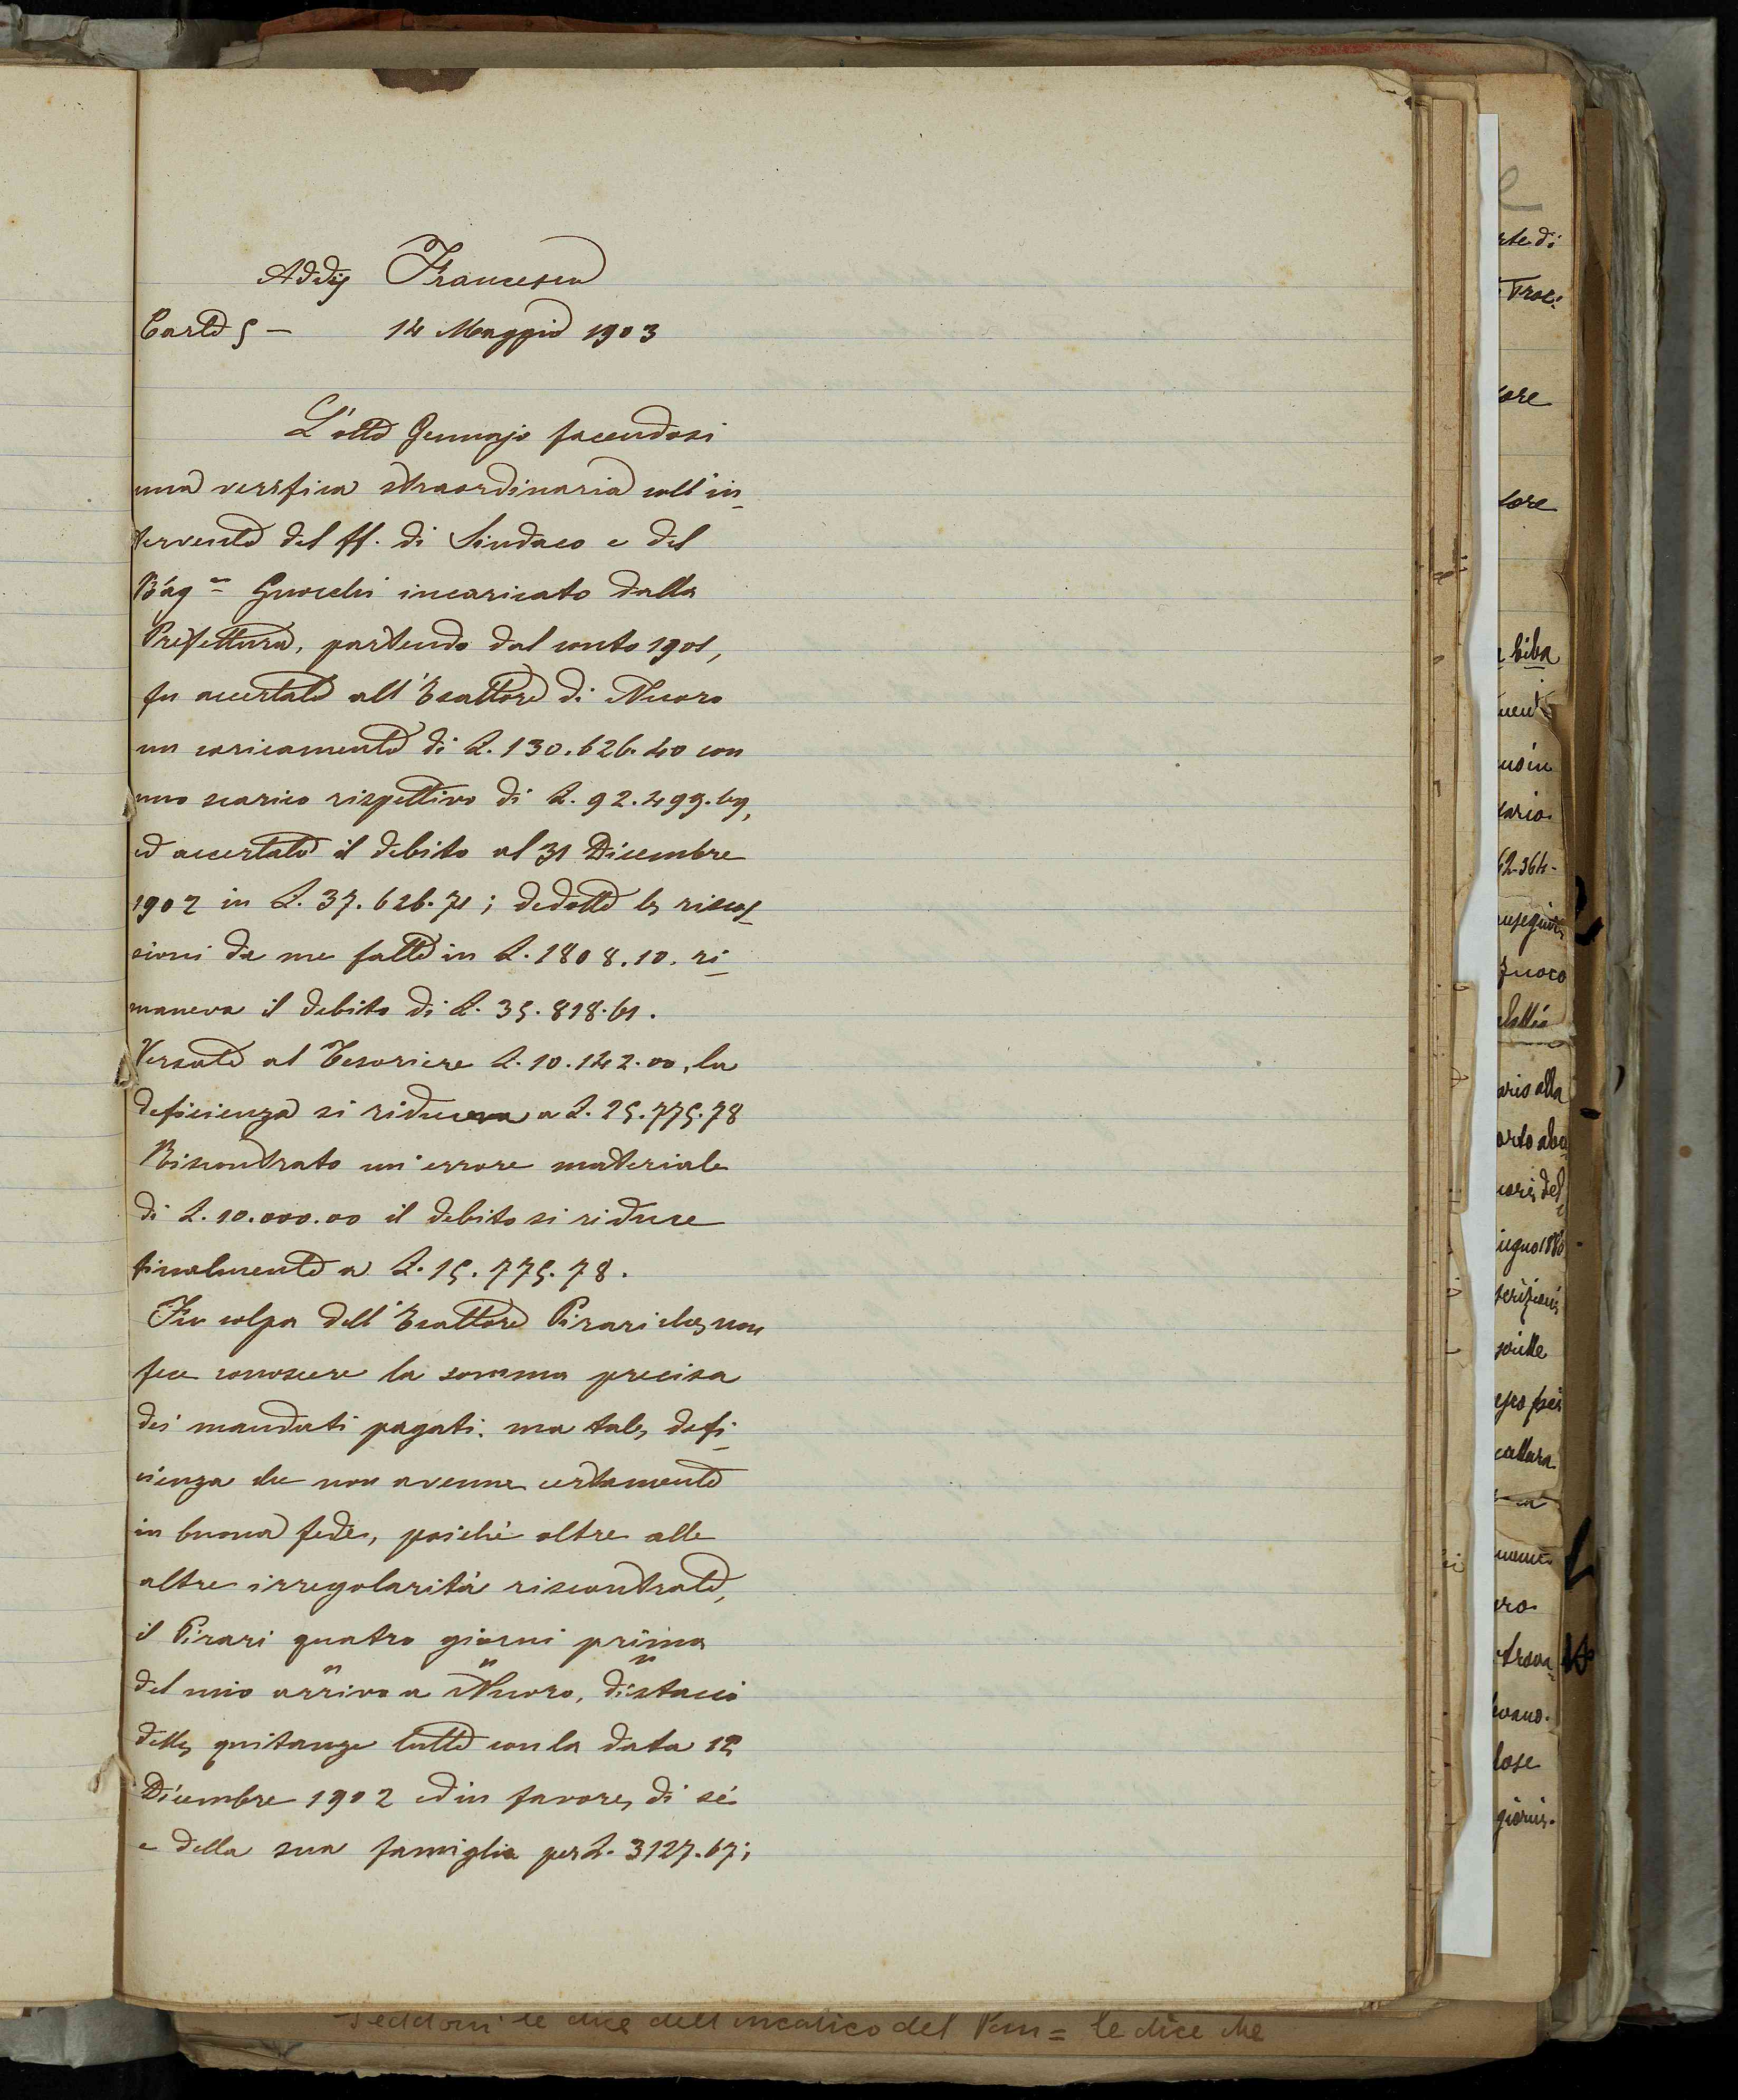 Addis Francesco
Carte 5 - 14 Maggio 1903
L'otto Gennajo facendosi
una verifica straordinaria coll'in-
tervento del ff. di Sindaco e del
Rag.re Gnocchi incaricato dalla
Prefettura, partendo dal conto 1901,
fu accertato all'Esattore di Nuoro
un caricamento di L. 130.626.40 con
uno scarico rispettivo di L. 92.499.69,
ed accertato il debito al 31 Dicembre
1902 in L. 37.626.71; dedotte le riscos-
sioni da me fatte in L. 1808.10. ri-
maneva il debito di L. 35.818.61.
Versate al Tesoriere L. 10.142.00, la
deficienza si riduceva a L. 25.775.78
Riscontrato un'errore materiale
di L. 10.000.00 il debito si riduce
finalmente a L. 15.775.78.
Fu colpa dell'Esattore Pirari che non
fece conoscere la somma precisa
dei mandati pagati. ma tale defi-
cienza che non avenne certamente
in buona fede, poichè oltre alle
altre irregolarità riscontrate,
il Pirari quatro giorni prima
del mio arrivo a Nuoro, distaccò
delle quitanze tutte con la data 15
Dicembre 1902 ed in favore di sè
e della sua famiglia per L. 3127.67;
rte di
ore
tore
Ciba
ario
62-364-
fuoco
ario alla
ugno 1880
ero
lose
giorni.
le dice dell'incarico del = le dice che